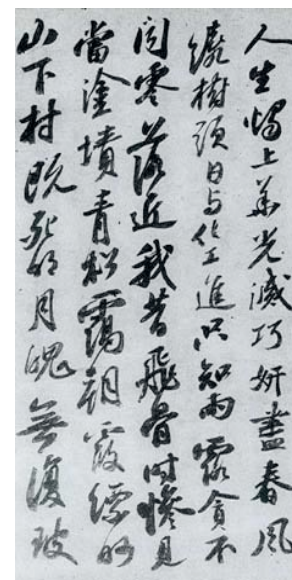 人生燭上華光滅巧妍盡春風
繞樹頭日与化工進只知雨露貪不
聞零落近我昔飛骨時慘見
當塗墳青松靄朝霞縹緲
山下村既死明月魄無復玻